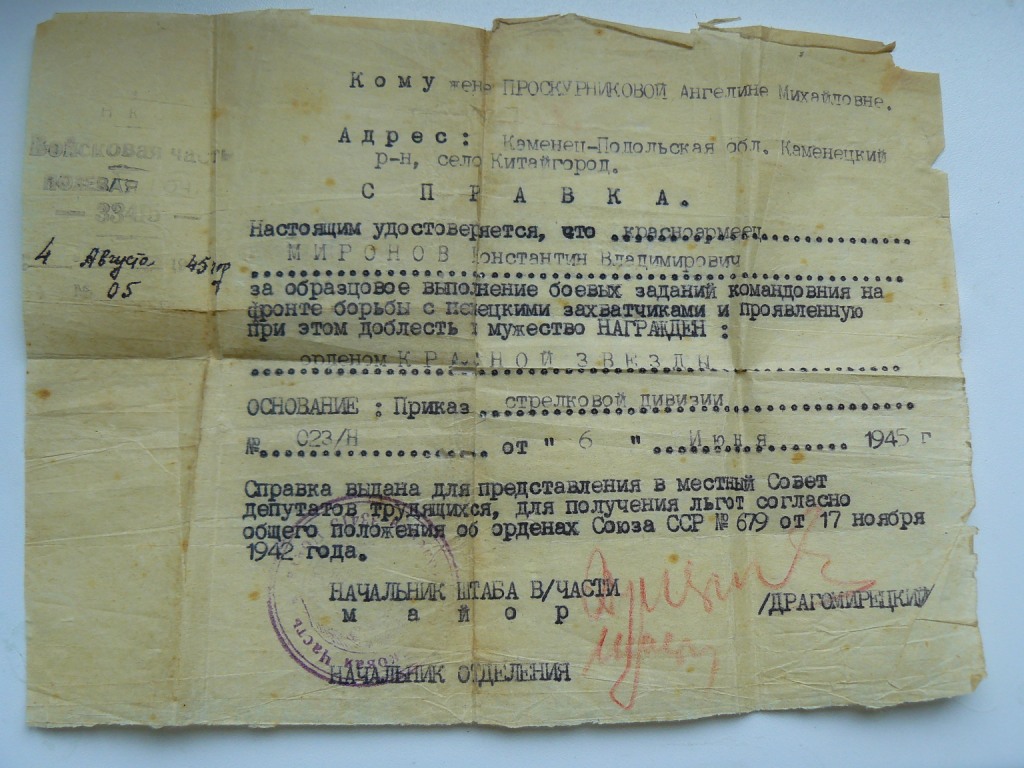 Кому жене ПРОСКУРНИКОВОЙ Ангелине Михайловне.
Адрес: Каменец-Подольская обл. Каменецкий
р-н, село Китайгород.
Н К
Войсковая часть
ПОЛЕВАЯ
— 33415 —
4 Августа 45 г
№ 05
СПРАВКА.
Настоящим удостоверяется, что красноармеец
МИРОНОВ Константин Владимирович
за образцовое выполнение боевых заданий командовния на
фронте борьбы с немецкими захватчиками и проявленную
при этом доблесть и мужество НАГРАЖДЕН :
орденом КРАСНОЙ ЗВЕЗДЫ
ОСНОВАНИЕ : Приказ стрелковой дивизии
№ 023/Н от " 6 " Июня 1945 г
Справка выдана для представления в местный Совет
депутатов трудящихся, для получения льгот согласно
общего положения об орденах Союза ССР № 679 от 17 ноября
1942 года.
НАЧАЛЬНИК ШТАБА В/ЧАСТИ
майор /ДРАГОМИРЕЦКИЙ/
НАЧАЛЬНИК ОТДЕЛЕНИЯ